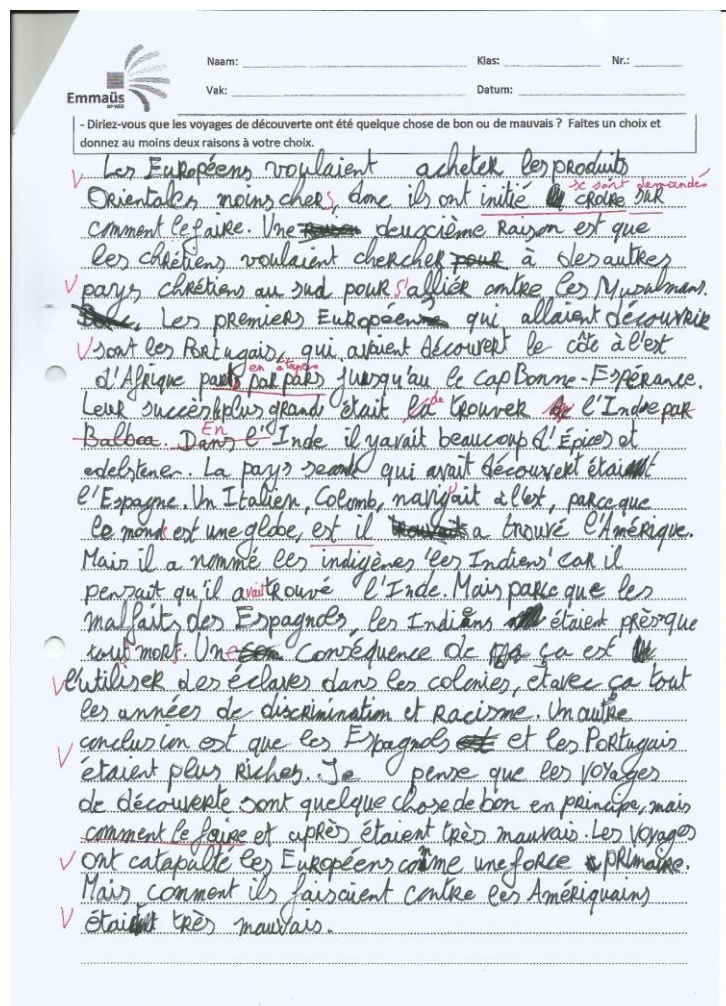 Naam: Klas: Nr.:
Vak: Datum:
Emmaüs
- Diriez-vous que les voyages de découverte ont été quelque chose de bon ou de mauvais ? Faites un choix et
donnez au moins deux raisons à votre choix.
Les Européens voulaient acheter les produits
se sont demandés
Orientales moins chers, donc ils ont initié croire sur
comment le faire. Une deuxième Raison est que
les chrétiens voulaient chercher à des autres
pays chrétiens au sud pour s'alliér contre les Musulmans.
Les premiers Européens qui allaient découvrir
sont les Portugais, qui avaient découvert le côte à l'est
en étapes
d'Afrique pars par pars jusqu'au le cap Bonne-Espérance.
Leur succès plus grand était de trouver l'Inde par
En
Balboa. Dans l'Inde il yavait beaucoup d'Épices et
edelstenen. La pays seconde qui avait découvert étaient
l'Espagne. Un Italien, Colomb, navigait à l'est, parce que
le monde est une globe, est il a trouvé l'Amérique.
Mais il a nommé les indigènes 'les Indiens' car il
pensait qu'il avait trouvé l'Inde. Mais parce que les
malfaits des Espagnols, les Indiens étaient près que
tous morts. Une conséquence de ça est
l'utiliser des éclaves dans les colonies, et avec ça tout
les années de discrimination et Racisme. Un autre
conclusion est que les Espagnols et les Portugais
étaient plus riches. Je pense que les voyages
de découverte sont quelque chose de bon en principe, mais
comment le faire et après étaient très mauvais. Les voyages
ont catapulté les Européens comme une force primaire.
Mais comment ils faisaient contre les Amériquains
étaient très mauvais.